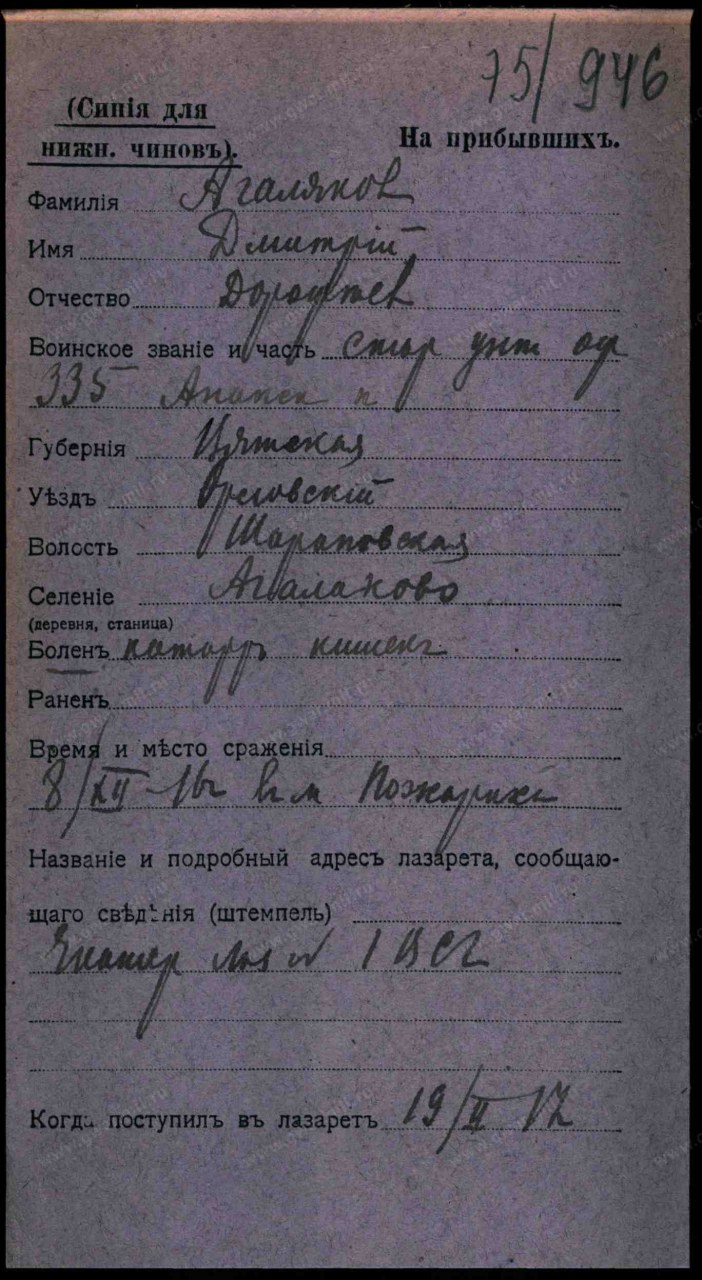 75/946
(Синія для
нижн. чиновъ).
На прибывшихъ.
Фамилія Агаляков
Имя Дмитрій
Отчество Дорофеев
Воинское званіе и часть стар унт оф
335 Анапск п
Губернія Вятская
Уѣздъ Орловскій
Волость Шараповская
Селеніе Агалаково
(деревня, станица)
Боленъ катарръ кишекъ
Раненъ
Время и мѣсто сраженія
8/XII 16г в м
Названіе и подробный адресъ лазарета, сообщаю-
щаго свѣдѣнія (штемпель)
Екатер 1
Когда поступилъ въ лазаретъ 19/II 17